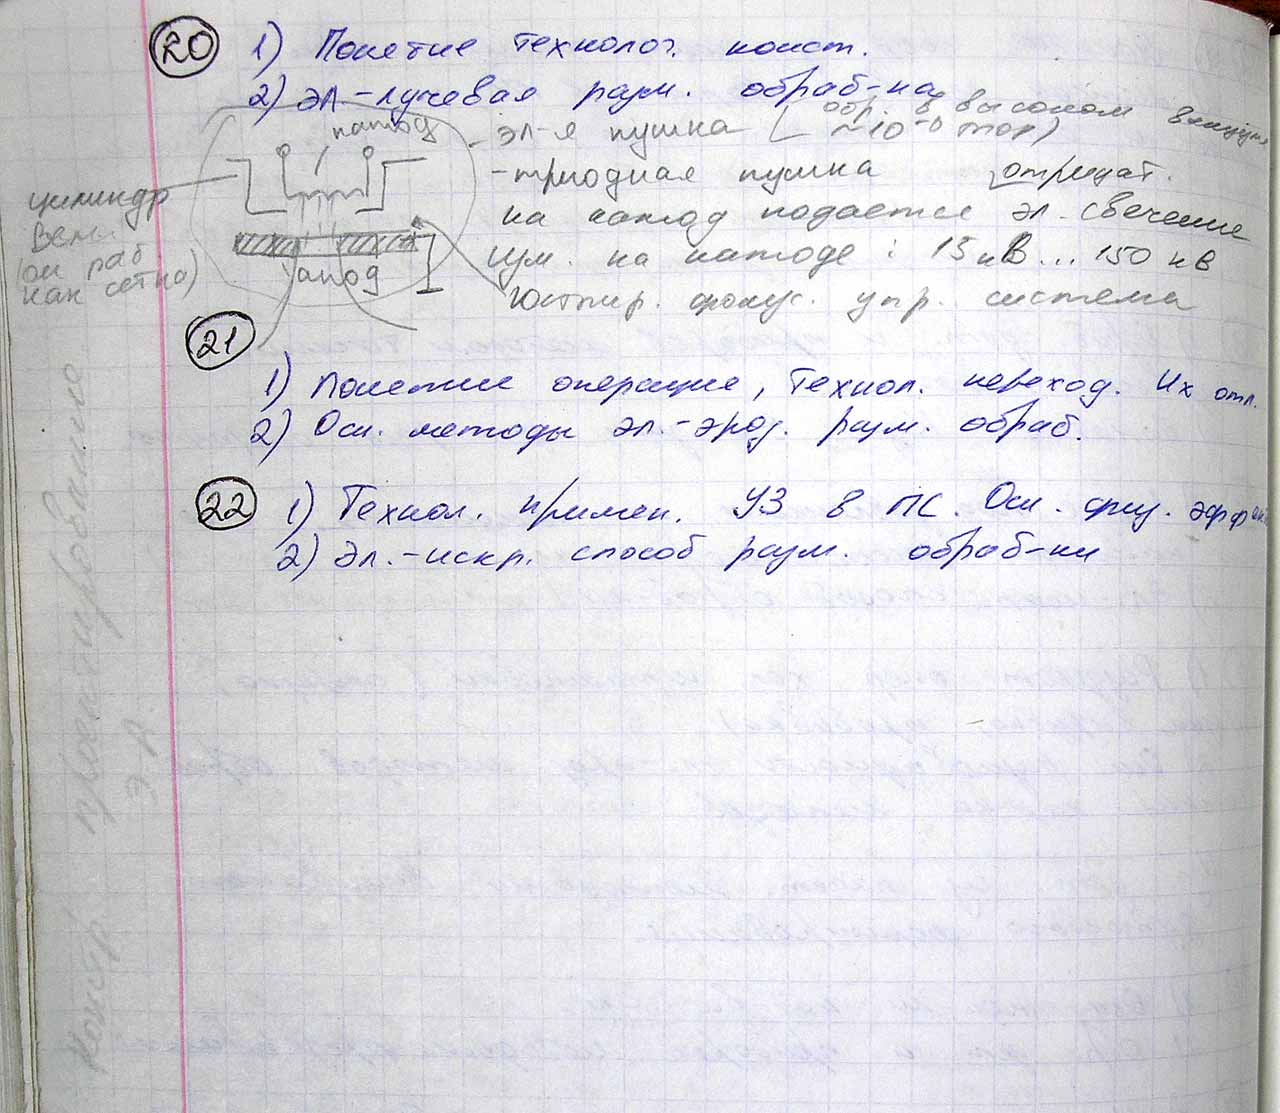 20 1) Понетие технолог. конст.
2) Эл.-лучевая разм. обраб-ка
катод
- эл-я пушка ( обр. в высоком вакууме
~10⁻⁶ тор)
- триодная пушка отридат.
цилиндр
на катод подается эл. свечение
(он раб
как сетка)
анод
изм. на катоде : 15 кВ... 150 кВ
Юстир. фокус. упр. система
21
1) Понетие операцие, технол. переход. Их отл.
2) Осн. методы эл.-эроз. разм. обраб.
22 1) Технол. примен. УЗ в ПС Осн. физ. эффект
2) Эл.-искр. способ разм. обраб-ки
Констр. проектирование
Э. А.